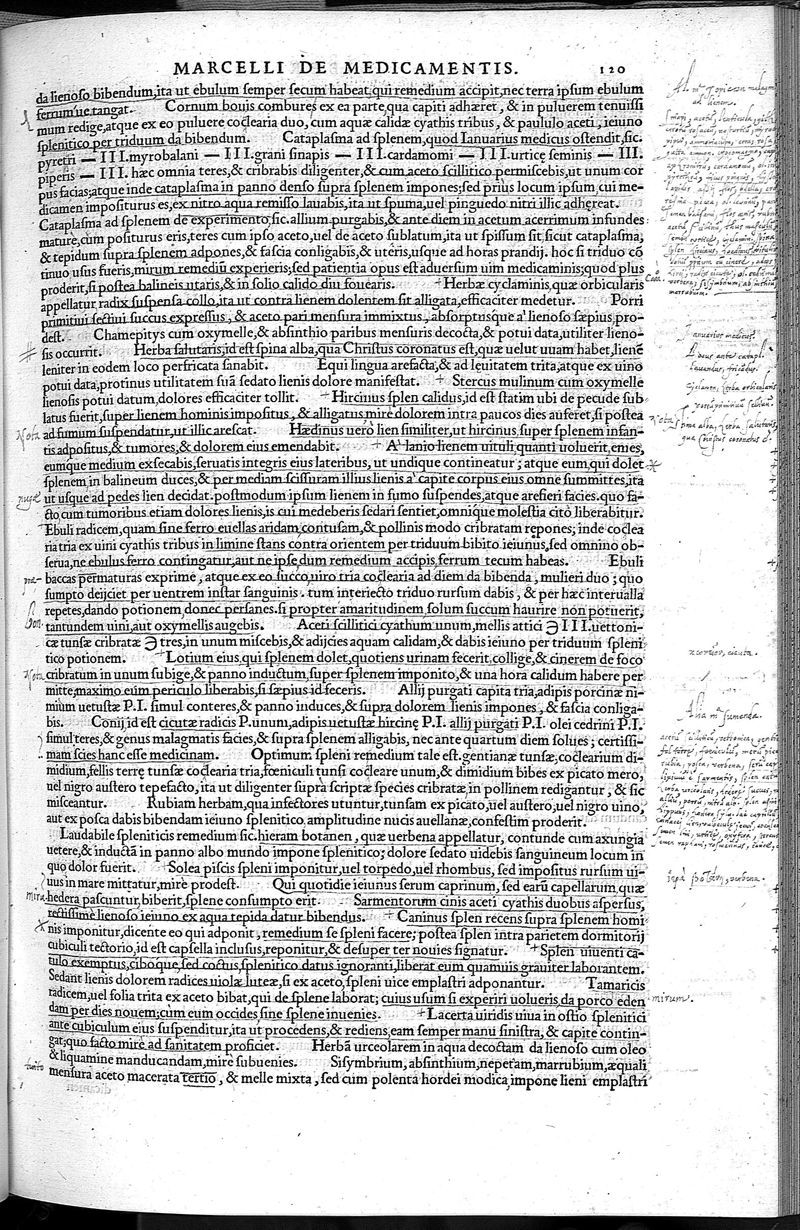 MARCELLI DE MEDICAMENTIS. 120
da lienoso bibendum,ita ut ebulum semper secum habeat,qui remedium accipit,nec terra ipsum ebulum
ferrum ue tangat. Cornum bouis combures ex ea parte,qua capiti adhæret, & in puluerem tenuissi
mum redige,atque ex eo puluere coclearia duo, cum aquæ calidæ cyathis tribus, & paululo aceti, ieiuno
splenitico per triduum da bibendum. Cataplasma ad splenem,quod Ianuarius medicus ostendit,sic.
pyretri — III.myrobalani — III.grani sinapis — III.cardamomi — III.urticę seminis — III.
piperis — III. hæc omnia teres,& cribrabis diligenter,& cum aceto scillitico permiscebis,ut unum cor
pus facias;atque inde cataplasma in panno denso supra splenem impones;sed prius locum ipsum,cui me-
dicamen impositurus es,ex nitro aqua remisso lauabis,ita ut spuma,uel pinguedo nitri illic adhęreat.
Cataplasma ad splenem de experimento sic.allium purgabis,& ante diem in acetum acerrimum infundes
mature,cum positurus eris,teres cum ipso aceto,uel de aceto sublatum,ita ut spissum sit,sicut cataplasma;
& tepidum supra splenem adpones,& fascia conligabis,& uteris,usque ad horas prandij. hoc si triduo cō
tinuo usus fueris,mirum remediū experieris;sed patientia opus est aduersum uim medicaminis;quod plus
proderit,si postea balineis utaris,& in solio calido diu fouearis. + Herbæ cyclaminis,quæ orbicularis
appellatur radix suspensa collo,ita ut contra lienem dolentem sit alligata,efficaciter medetur. Porri
primitiui sectiui succus expressus, & aceto pari mensura immixtus, absorptusque a' lienoso sæpius,pro-
dest. Chamepitys cum oxymelle,& absinthio paribus mensuris decocta,& potui data,utiliter lieno-
sis occurrit. Herba salutaris,id est spina alba,qua Christus coronatus est,quæ uelut uuam habet,lienē
leniter in eodem loco perfricata sanabit. Equi lingua arefacta,& ad leuitatem trita,atque ex uino
potui data,protinus utilitatem suā sedato lienis dolore manifestat. + Stercus mulinum cum oxymelle
lienosis potui datum,dolores efficaciter tollit. + Hircinus splen calidus,id est statim ubi de pecude sub-
latus fuerit,super lienem hominis impositus, & alligatus mire dolorem intra paucos dies auferet,si postea
ad fumum suspendatur,ut illic arescat. Hædinus uero lien similiter,ut hircinus,super splenem infan-
tis adpositus,& tumores,& dolorem eius emendabit. + A' lanio lienem uituli,quanti uoluerit,emes,
eumque medium exsecabis,seruatis integris eius lateribus, ut undique contineatur; atque eum,qui dolet
splenem in balineum duces,& per mediam scissuram illius lienis a' capite corpus eius omne summittes,ita
ut usque ad pedes lien decidat.postmodum ipsum lienem in fumo suspendes,atque arefieri facies.quo fa-
cto,cum tumoribus etiam dolores lienis,is cui medeberis sedari sentiet,omnique molestia cito liberabitur.
Ebuli radicem,quam sine ferro euellas aridam,contusam,& pollinis modo cribratam repones; inde coclea
ria tria ex uini cyathis tribus in limine stans contra orientem per triduum bibito ieiunus,sed omnino ob-
serua,ne ebulus ferro contingatur,aut ne ipse,dum remedium accipis,ferrum tecum habeas. Ebuli
baccas permaturas exprime, atque ex eo succo,uiro tria coclearia ad diem da bibenda, mulieri duo; quo
sumpto deijciet per uentrem instar sanguinis. tum interiecto triduo rursum dabis, & per hæc interualla
repetes,dando potionem,donec persanes.si propter amaritudinem,solum succum haurire non potuerit,
tantundem uini,aut oxymellis augebis. Aceti scillitici cyathum unum,mellis attici ℈ III.uettoni-
cæ tunsæ cribratæ ℈ tres,in unum miscebis,& adijcies aquam calidam,& dabis ieiuno per triduum spleni
tico potionem. + Lotium eius,qui splenem dolet,quotiens urinam fecerit,collige,& cinerem de foco
cribratum in unum subige,& panno inductum,super splenem imponito,& una hora calidum habere per
mitte,maximo eum periculo liberabis,si sæpius id feceris. Allij purgati capita tria,adipis porcinæ ni-
mium uetustæ P.I. simul conteres,& panno induces,& supra dolorem lienis impones, & fascia conliga-
bis. Conij id est cicutæ radicis P.unum,adipis uetustæ hircinę P.I. allij purgati P.I. olei cedrini P.I.
simul teres,& genus malagmatis facies,& supra splenem alligabis, nec ante quartum diem solues; certissi-
mam scies hanc esse medicinam. Optimum spleni remedium tale est.gentianæ tunsæ,coclearium di-
midium,fellis terrę tunsæ coclearia tria,fœniculi tunsi cocleare unum,& dimidium bibes ex picato mero,
uel nigro austero tepefacto,ita ut diligenter supra scriptæ species cribratæ,in pollinem redigantur, & sic
misceantur. Rubiam herbam,qua infectores utuntur,tunsam ex picato,uel austero,uel nigro uino,
aut ex posca dabis bibendam ieiuno splenitico amplitudine nucis auellanæ,confestim proderit.
Laudabile spleniticis remedium sic.hieram botanen, quæ uerbena appellatur, contunde cum axungia
uetere,& inductā in panno albo mundo impone splenitico; dolore sedato uidebis sanguineum locum in
quo dolor fuerit. + Solea piscis spleni imponitur,uel torpedo,uel rhombus, sed impositus rursum ui-
uus in mare mittatur,mire prodest. Qui quotidie ieiunus serum caprinum, sed earū capellarum,quæ
hedera pascuntur,biberit,splene consumpto erit. Sarmentorum cinis aceti cyathis duobus aspersus,
rectissime lienoso ieiuno ex aqua tepida datur bibendus. + Caninus splen recens supra splenem homi
nis imponitur,dicente eo qui adponit, remedium se spleni facere; postea splen intra parietem dormitorij
cubiculi tectorio,id est capsella inclusus,reponitur,& desuper ter nouies signatur. + Splen uiuenti ca-
tulo exemptus,ciboque,sed coctus,splenitico datus ignoranti,liberat eum quamuis grauiter laborantem.
Sedant lienis dolorem radices uiolæ luteæ,si ex aceto,spleni uice emplastri adponantur. Tamaricis
radicem,uel folia trita ex aceto bibat,qui de splene laborat; cuius usum si experiri uolueris,da porco eden
dam per dies nouem;cum eum occides sine splene inuenies. + Lacerta uiridis uiua in ostio splenitici
ante cubiculum eius suspenditur,ita ut procedens,& rediens,eam semper manu sinistra, & capite contin-
gat;quo facto mire ad sanitatem proficiet. Herbā urceolarem in aqua decoctam da lienoso cum oleo
& liquamine manducandam,mire subuenies. Sisymbrium, absinthium,nepetam,marrubium,æquali
mensura aceto macerata tertio, & melle mixta, sed cum polenta hordei modica,impone lieni emplastri
Nota
Nota
mirum.